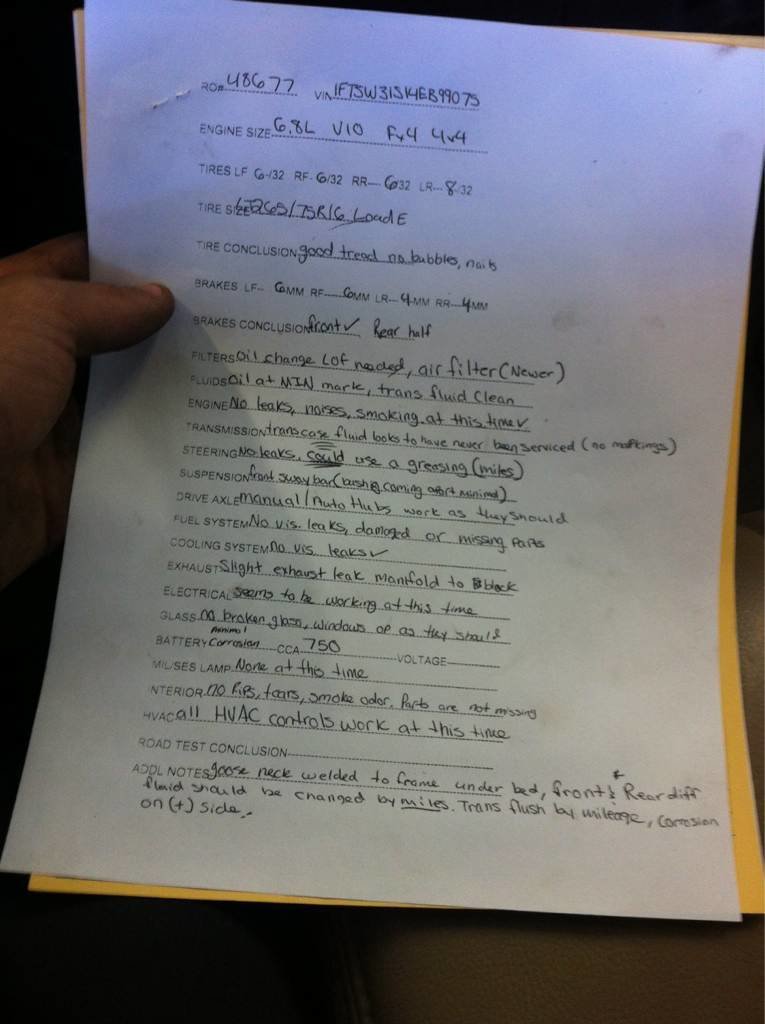 RO# 48677 VIN 1FTSW31S14EB99075
ENGINE SIZE 6.8L V10 Fx4 4x4
TIRES LF 6/32 RF- 6/32 RR--- 6/32 LR--- 8/32
TIRE SIZE 265/75R16 Load E
TIRE CONCLUSION good tread no bubbles, nails
BRAKES LF-- 6MM RF---- 6MM LR--- 4MM RR--- 4MM
BRAKES CONCLUSION front ✓ Rear half
FILTERS Oil change LOF needed, air filter (Newer)
FLUIDS Oil at MIN mark, trans fluid clean
ENGINE No leaks, noises, smoking at this time ✓
TRANSMISSION transcase fluid looks to have never been serviced (no markings)
STEERING No leaks, could use a greasing (miles)
SUSPENSION front sway bar (bushing coming apart minimal)
DRIVE AXLE manual/Auto Hubs work as they should
FUEL SYSTEM No vis. leaks, damaged or missing parts
COOLING SYSTEM no vis. leaks ✓
EXHAUST Slight exhaust leak manifold to block
ELECTRICAL seems to be working at this time
GLASS no broken glass, windows op as they should
BATTERY minimal Corrosion CCA 750 VOLTAGE
MIL/SES LAMP None at this time
INTERIOR no Rips, tears, smoke odor. Parts are not missing
HVAC all HVAC controls work at this time
ROAD TEST CONCLUSION
ADDL NOTES goose neck welded to frame under bed, front & Rear diff
fluid should be changed by miles. Trans flush by mileage, corrosion
on (+) side.